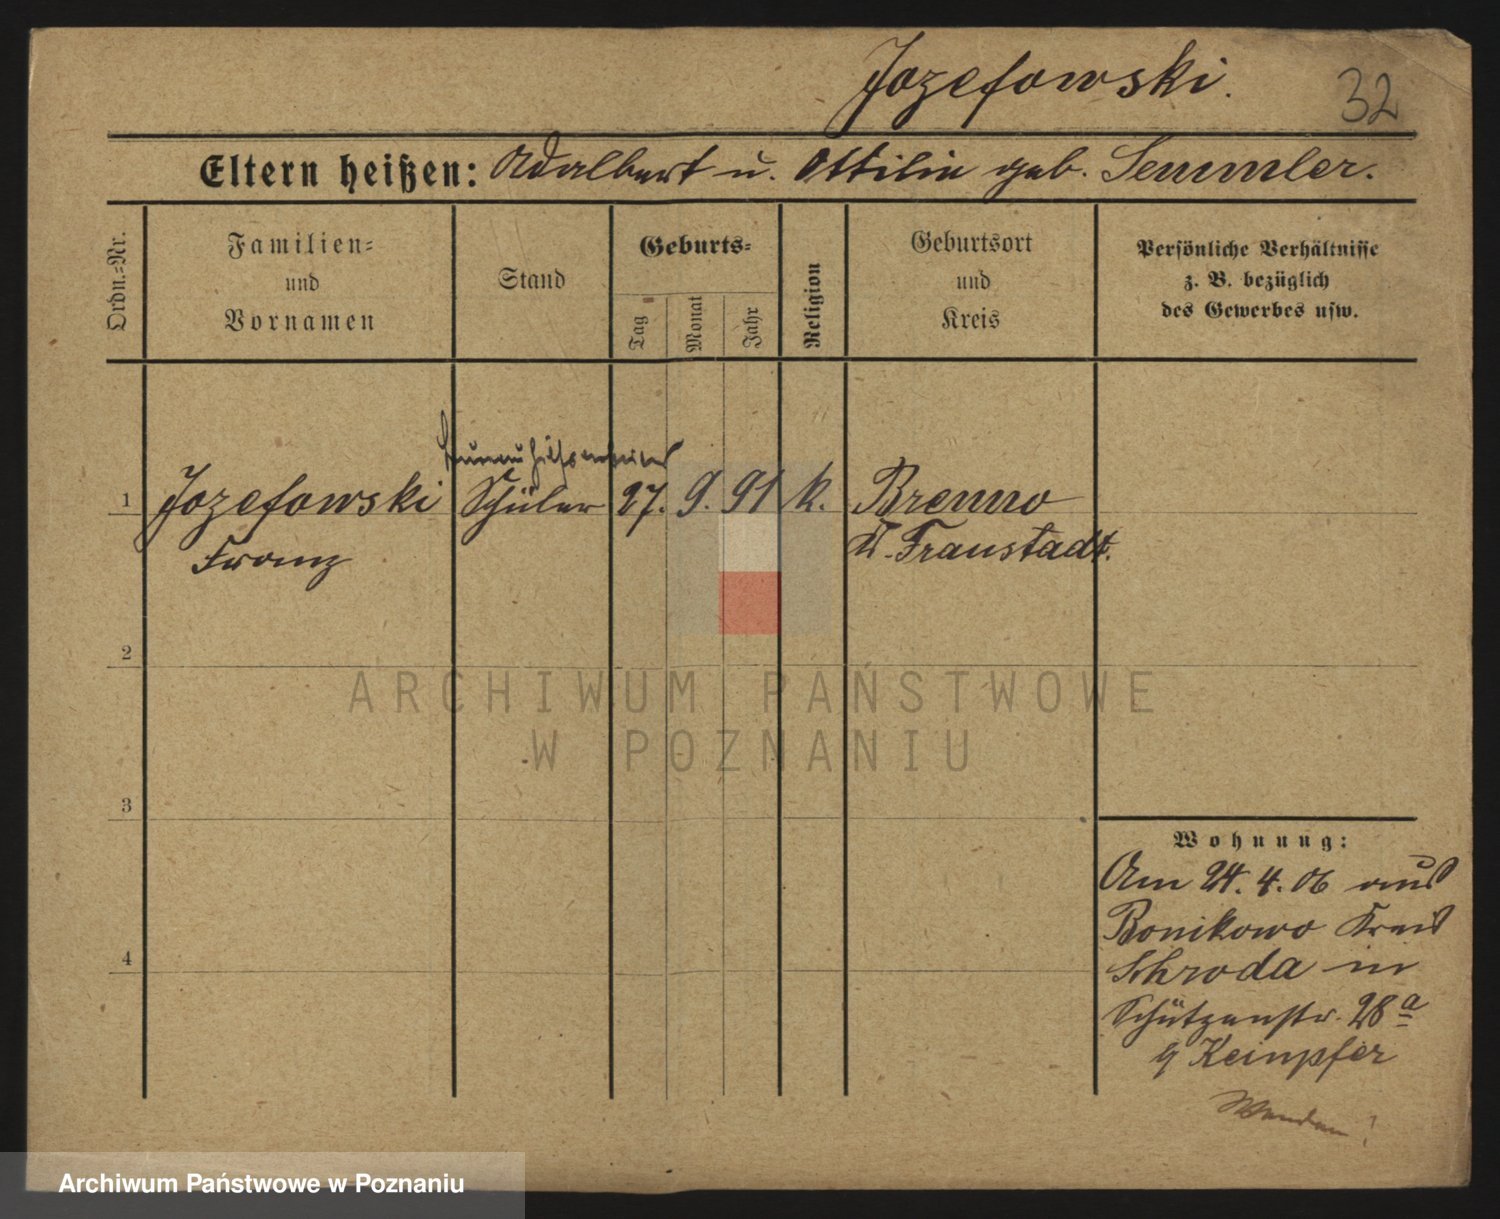 Jozefowski.
32
Eltern heißen: Adalbert u. Ottilie geb. Semmler.
Ordn.=Nr.
Familien=
und
Vornamen
Stand
Geburts=
Tag
Monat
Jahr
Religion
Geburtsort
und
Kreis
Persönliche Verhältnisse
z. B. bezüglich
des Gewerbes usw.
1 Jozefowski Schüler 27. 9. 91 k. Brenno
Franz
K. Fraustadt.
2
3
4
Wohnung:
Am 24. 4. 06 aus
Bonikowo Kreis
Schroda in
Schützenstr. 28a
Wenden!
ARCHIWUM PAŃSTWOWE
W POZNANIU
Archiwum Państwowe w Poznaniu